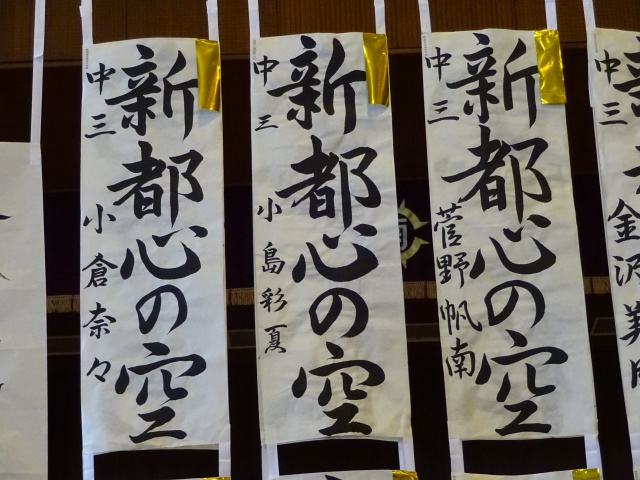 新都心の空
中三 小倉奈々
新都心の空
中三 小島彩夏
新都心の空
中三 菅野帆南
中三 金沢美